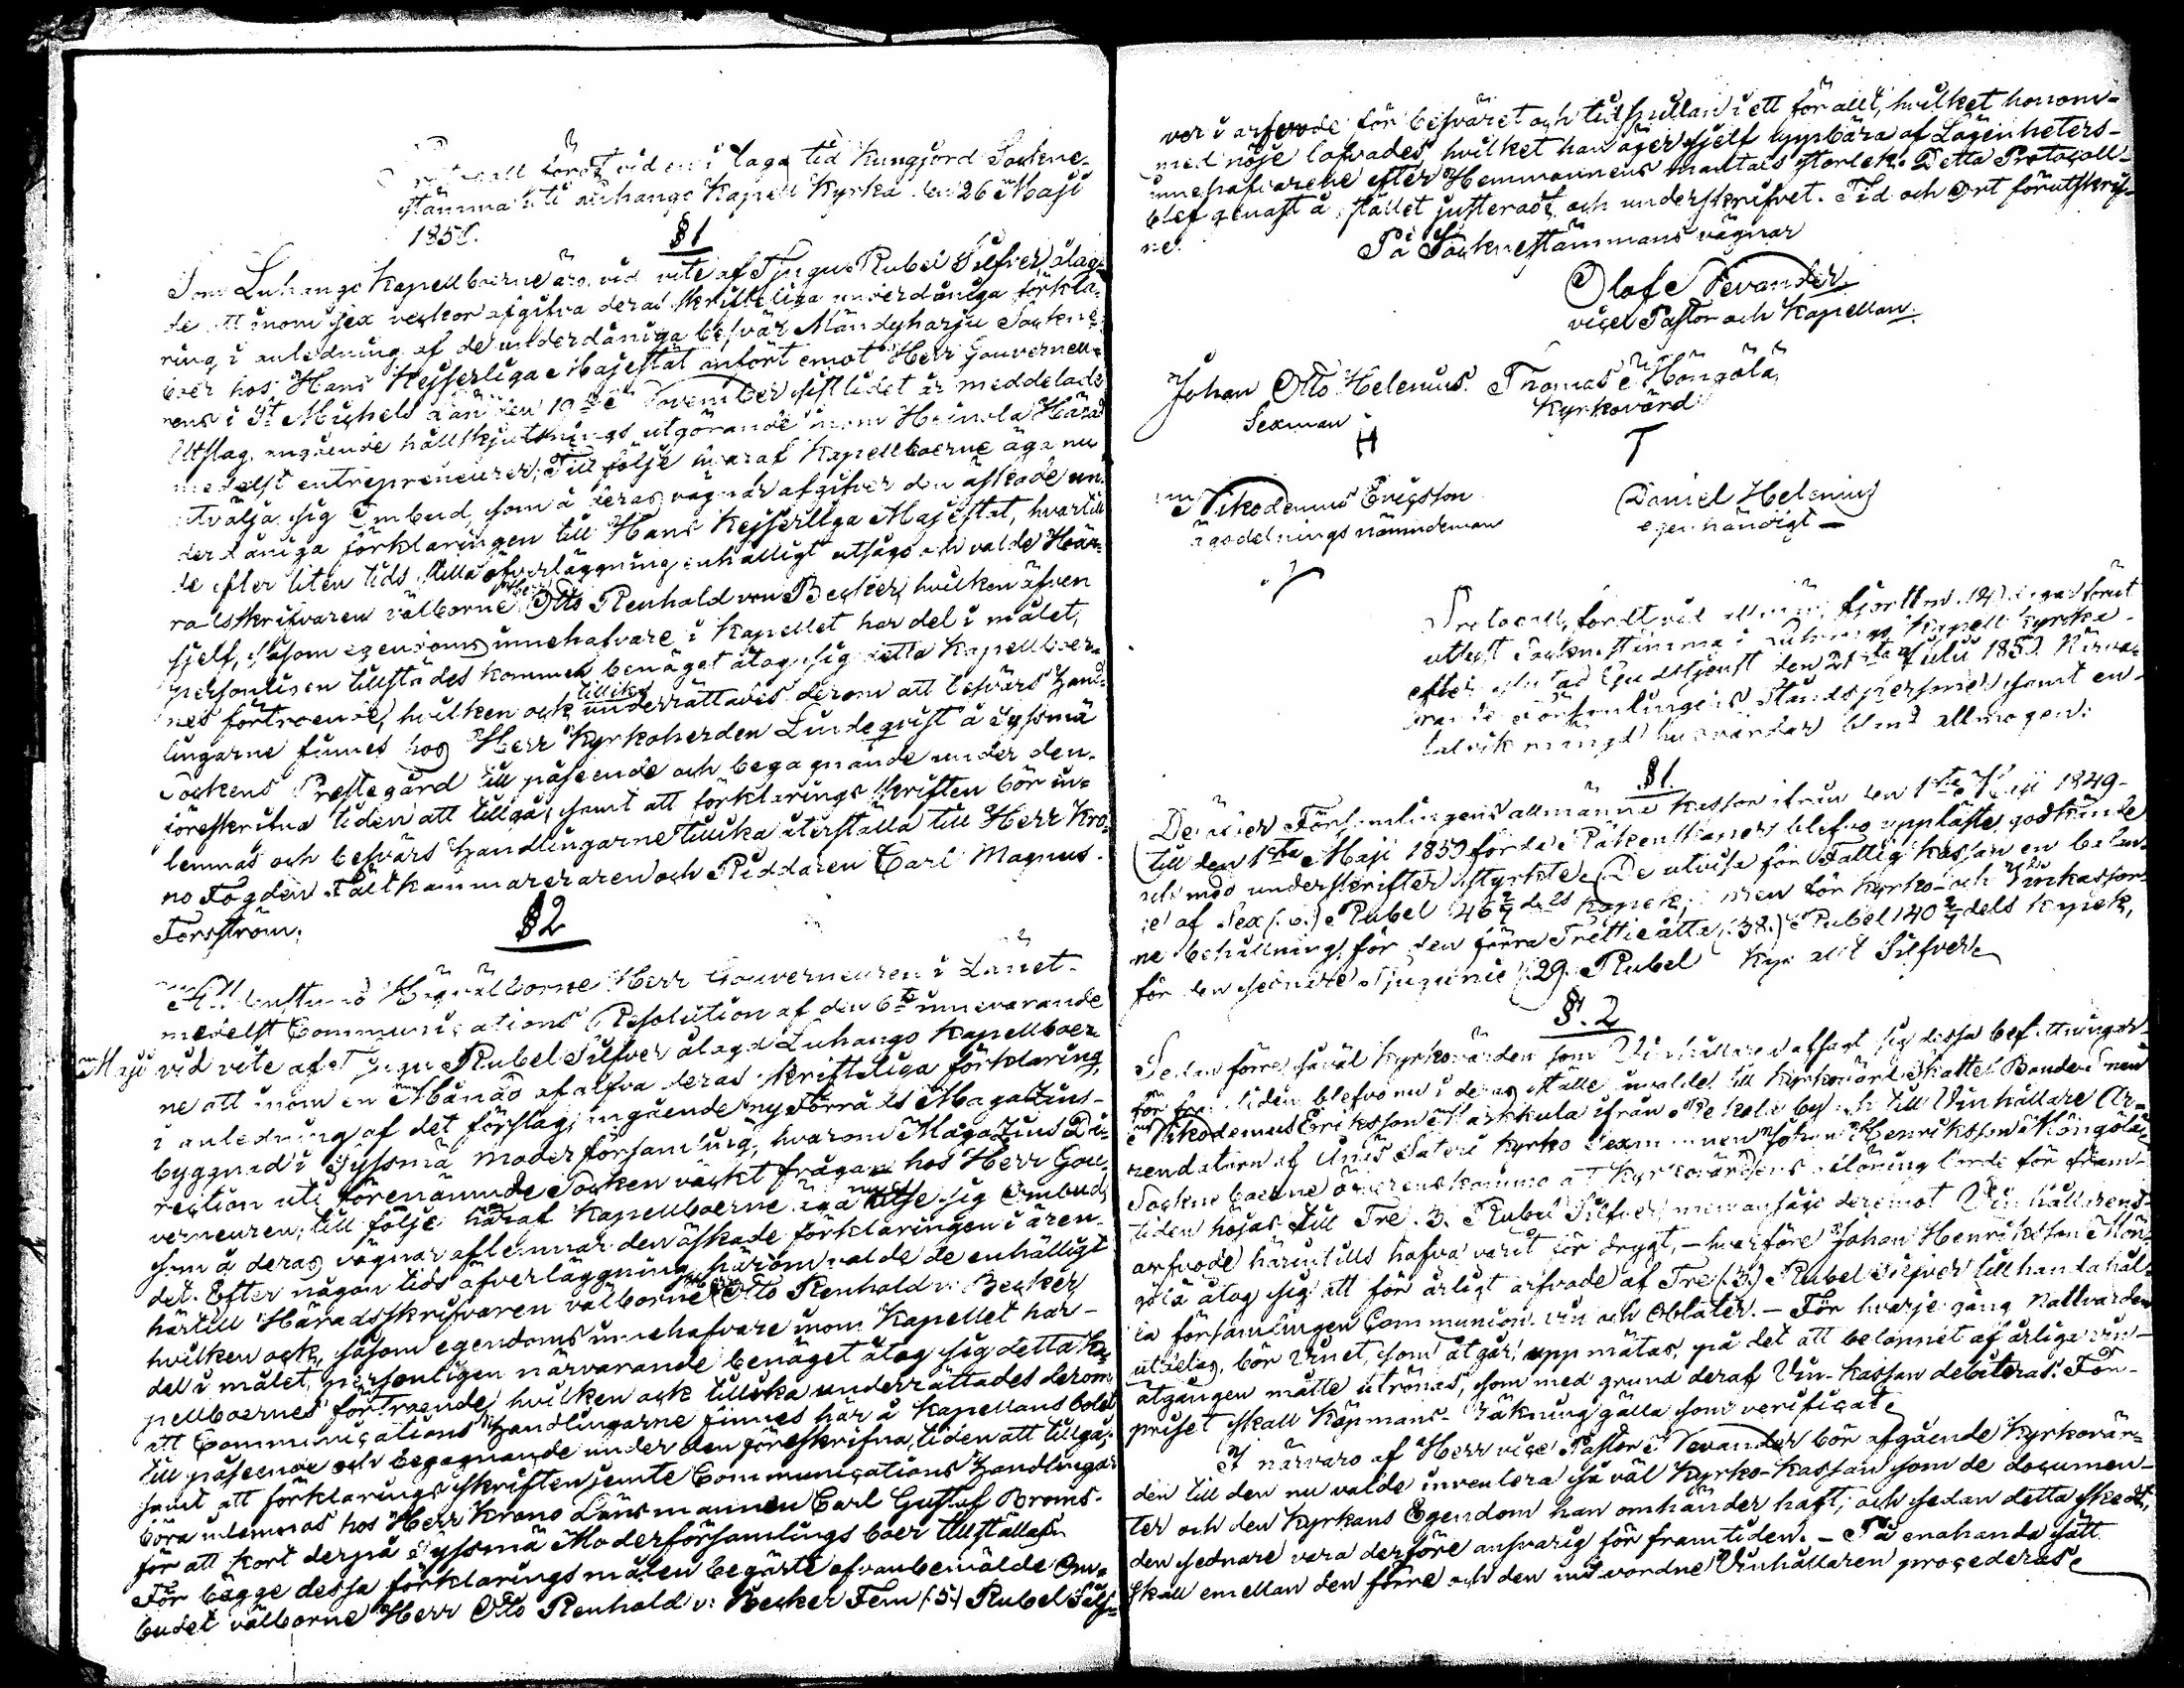 Protocoll fördt vid en i laga tid kungjord Sockne-
stämma uti Luhango Kapell Kyrka den 26 Maji
1850.
§ 1
Som Luhango Kapellboerne äro, vid vite af Tjugu Rubel Silfver ålag-
de att inom sex veckor afgifva deras skriftliga underdåniga förkla-
ring i anledning af de underdåniga besvär Mändyharju Sockne-
boer hos Hans Kejserliga Majestät anfört emot Herr Gouverneu-
rens i St Michels Län den 19de November sistlidet år meddelade
Utslag, angående hållskjutsnings utgörande inom Heinola Härad
medelst entrepreneurer; Till följe hvaraf Kapellboerne äga nu
utvälja sig Ombud, som å deras vägnar afgifver den äskade un-
derdåniga förklaringen till Hans Kejserliga Majestät, hvartill
de efter liten tids stilla öfverläggning enhälligt utsågo och valde Hä-
radsskrifvaren välborne Herr Otto Renhold von Becker, hvilken äfven
sjelf, såsom egendoms innehafvare i Kapellet har del i målet,
personligen tillstädes kommen benäget åtog sig detta Kapellboer-
nes förtroende, hvilken ock tillika underrättades derom att besvärs hand-
lingarne finnes hos Herr Kyrkoherden Lindeqvist å Syssmä
Sockens Prestegård till påseende och begagnande under den
föreskrifna tiden att tillgå, samt att förklarings skriften bör in-
lemnas och besvärs handlingarne tillika återställa till Herr Kro-
no Fogden Fältkammareraren och Riddaren Carl Magnus
Forsström.
§ 2
Högvälborne Herr Gouverneuren i Länet
medelst Communications Resolution af den 6te innevarande
Maji vid vite af Tjugu Rubel Silfver ålagd Luhango Kapellboer-
ne att inom en Månad afgifva deras skriftliga förklaring,
i anledning af det förslag, angående ny Förråds Magazins-
byggnad i Syssmä Moderförsamling, hvarom Magazins Di-
rection uti förenämnde Socken väckt frågan hos Herr Gou-
verneuren; till följe häraf Kapellboerne äga nu utse sig Ombud,
som å deras vägnar aflemnar den äskade förklaringen i ären-
det. Efter någon tids öfverläggning härom valde de enhälligt
härtill Häradsskrifvaren välborne Herr Otto Renhold v: Becker
hvilken ock, såsom egendoms innehafvare inom Kapellet har
del i målet, personligen närvarande benäget åtog sig detta Ka-
pellboernes förtroende, hvilken ock tillika underrättades derom
att Communications Handlingarne finnes här å Kapellans bolet
till påseende och begagnande under den föreskrifna tiden att tillgå,
samt att förklarings skriften jemte Communications Handlingar
böra inlemnas hos Herr Krono Länsmannen Carl Gustaf Broms
för att kort derpå Syssmä Moderförsamlings boer tillställas.
För bägge dessa förklarings målen begärte ofvanbemälde Om-
budet välborne Herr Otto Renhold v: Becker Fem (5) Rubel Silf-
ver i arfvode för besväret och tidspillan i ett för allt, hvilket honom
med nöje lofvades, hvilket han äger sjelf uppbära af Lägenheters-
innehafvarene efter Hemmanens mantals storlek. Detta Protocoll
blef genast å stället justeradt och underskrifvet. Tid och Ort förutskrif-
ne.
På Socknestämmans vägnar
Olof Nevander
vice Pastor och Kapellan.
Johan Otto Helenius.
Sexman
H
Thomas Höngölä
Kyrkovärd
T
Nikodemus Ericsson
ägodelnings nämndeman
Daniel Helenius
egenhändigt
Protocoll, fördt vid allmän fjorton (14) dagar förut
utlyst Socknestämma i Luhango Kapell Kyrka
efter slutad Gudstjenst den 21sta Julii 1850. Närva-
rande Församlingens Ståndspersoner samt en
talrik mängd husbönder bland allmogen:
§ 1
De öfver Församlingens allmänna kassor ifrån den 1sta Maji 1849
till den 1sta Maji 1850 förde Räkenskaper blefvo uppläste, godkände
och med underskrifter styrkte. De utvisa för Fattig kassan en behåll-
ne af Sex (6.) Rubel 46 2/7 dels kopek; men för Kyrko- och Vinkassor-
ne behållning, för den förra Trettioåtta (38.) Rubel 40 2/7 dels kopek,
för den sednare Tjugunie (29) Rubel Kop allt Silfver.
§. 2
Sedan förre såväl Kyrkovärden som Vinhållaren afsagt sig dessa befattningar
för framtiden, blefvo nu i deras ställe invalde till Kyrkovärd Skatte Bonde Sonen
Nikodemus Eriksson Markkula ifrån by och till Vinhållare Ar-
rendatorn af Sateri Kyrko Sexmannen Johan Henriksson Höngölä,
Sockneboerne öfverenskommo att Kyrkovärdens aflöning borde för fram-
tiden höjas till Tre (3.) Rubel Silfver, men ansågo deremot Vinhållarens
arfvode härintills hafva varit för drygt, – hvarföre Johan Henriksson Hön-
gölä åtog sig att för årligt arfvode af Tre (3.) Rubel Silfver tillhandahål-
la församlingen Communion. vin och Oblater. – För hvarje gång Nattvarden
utdelas, bör Vinet, som åtgår, uppmätas, på det att beloppet af årliga vin-
åtgången måtte utrönas, som med grund deraf Vin-Kassan debiteras. För
priset skall Köpmans-Räkning gälla som verificat.
I närvaro af Herr vice Pastor Nevander bör afgående Kyrkovär-
den till den nu valde inventera så väl Kyrko-kassan som de documen-
ter och den Kyrkans Egendom han omhänder haft; och sedan detta skedt,
den sednare vara derföre ansvarig för framtiden. – På enahanda sätt
skall emellan den förre och den nu vordne Vinhållaren procederas.